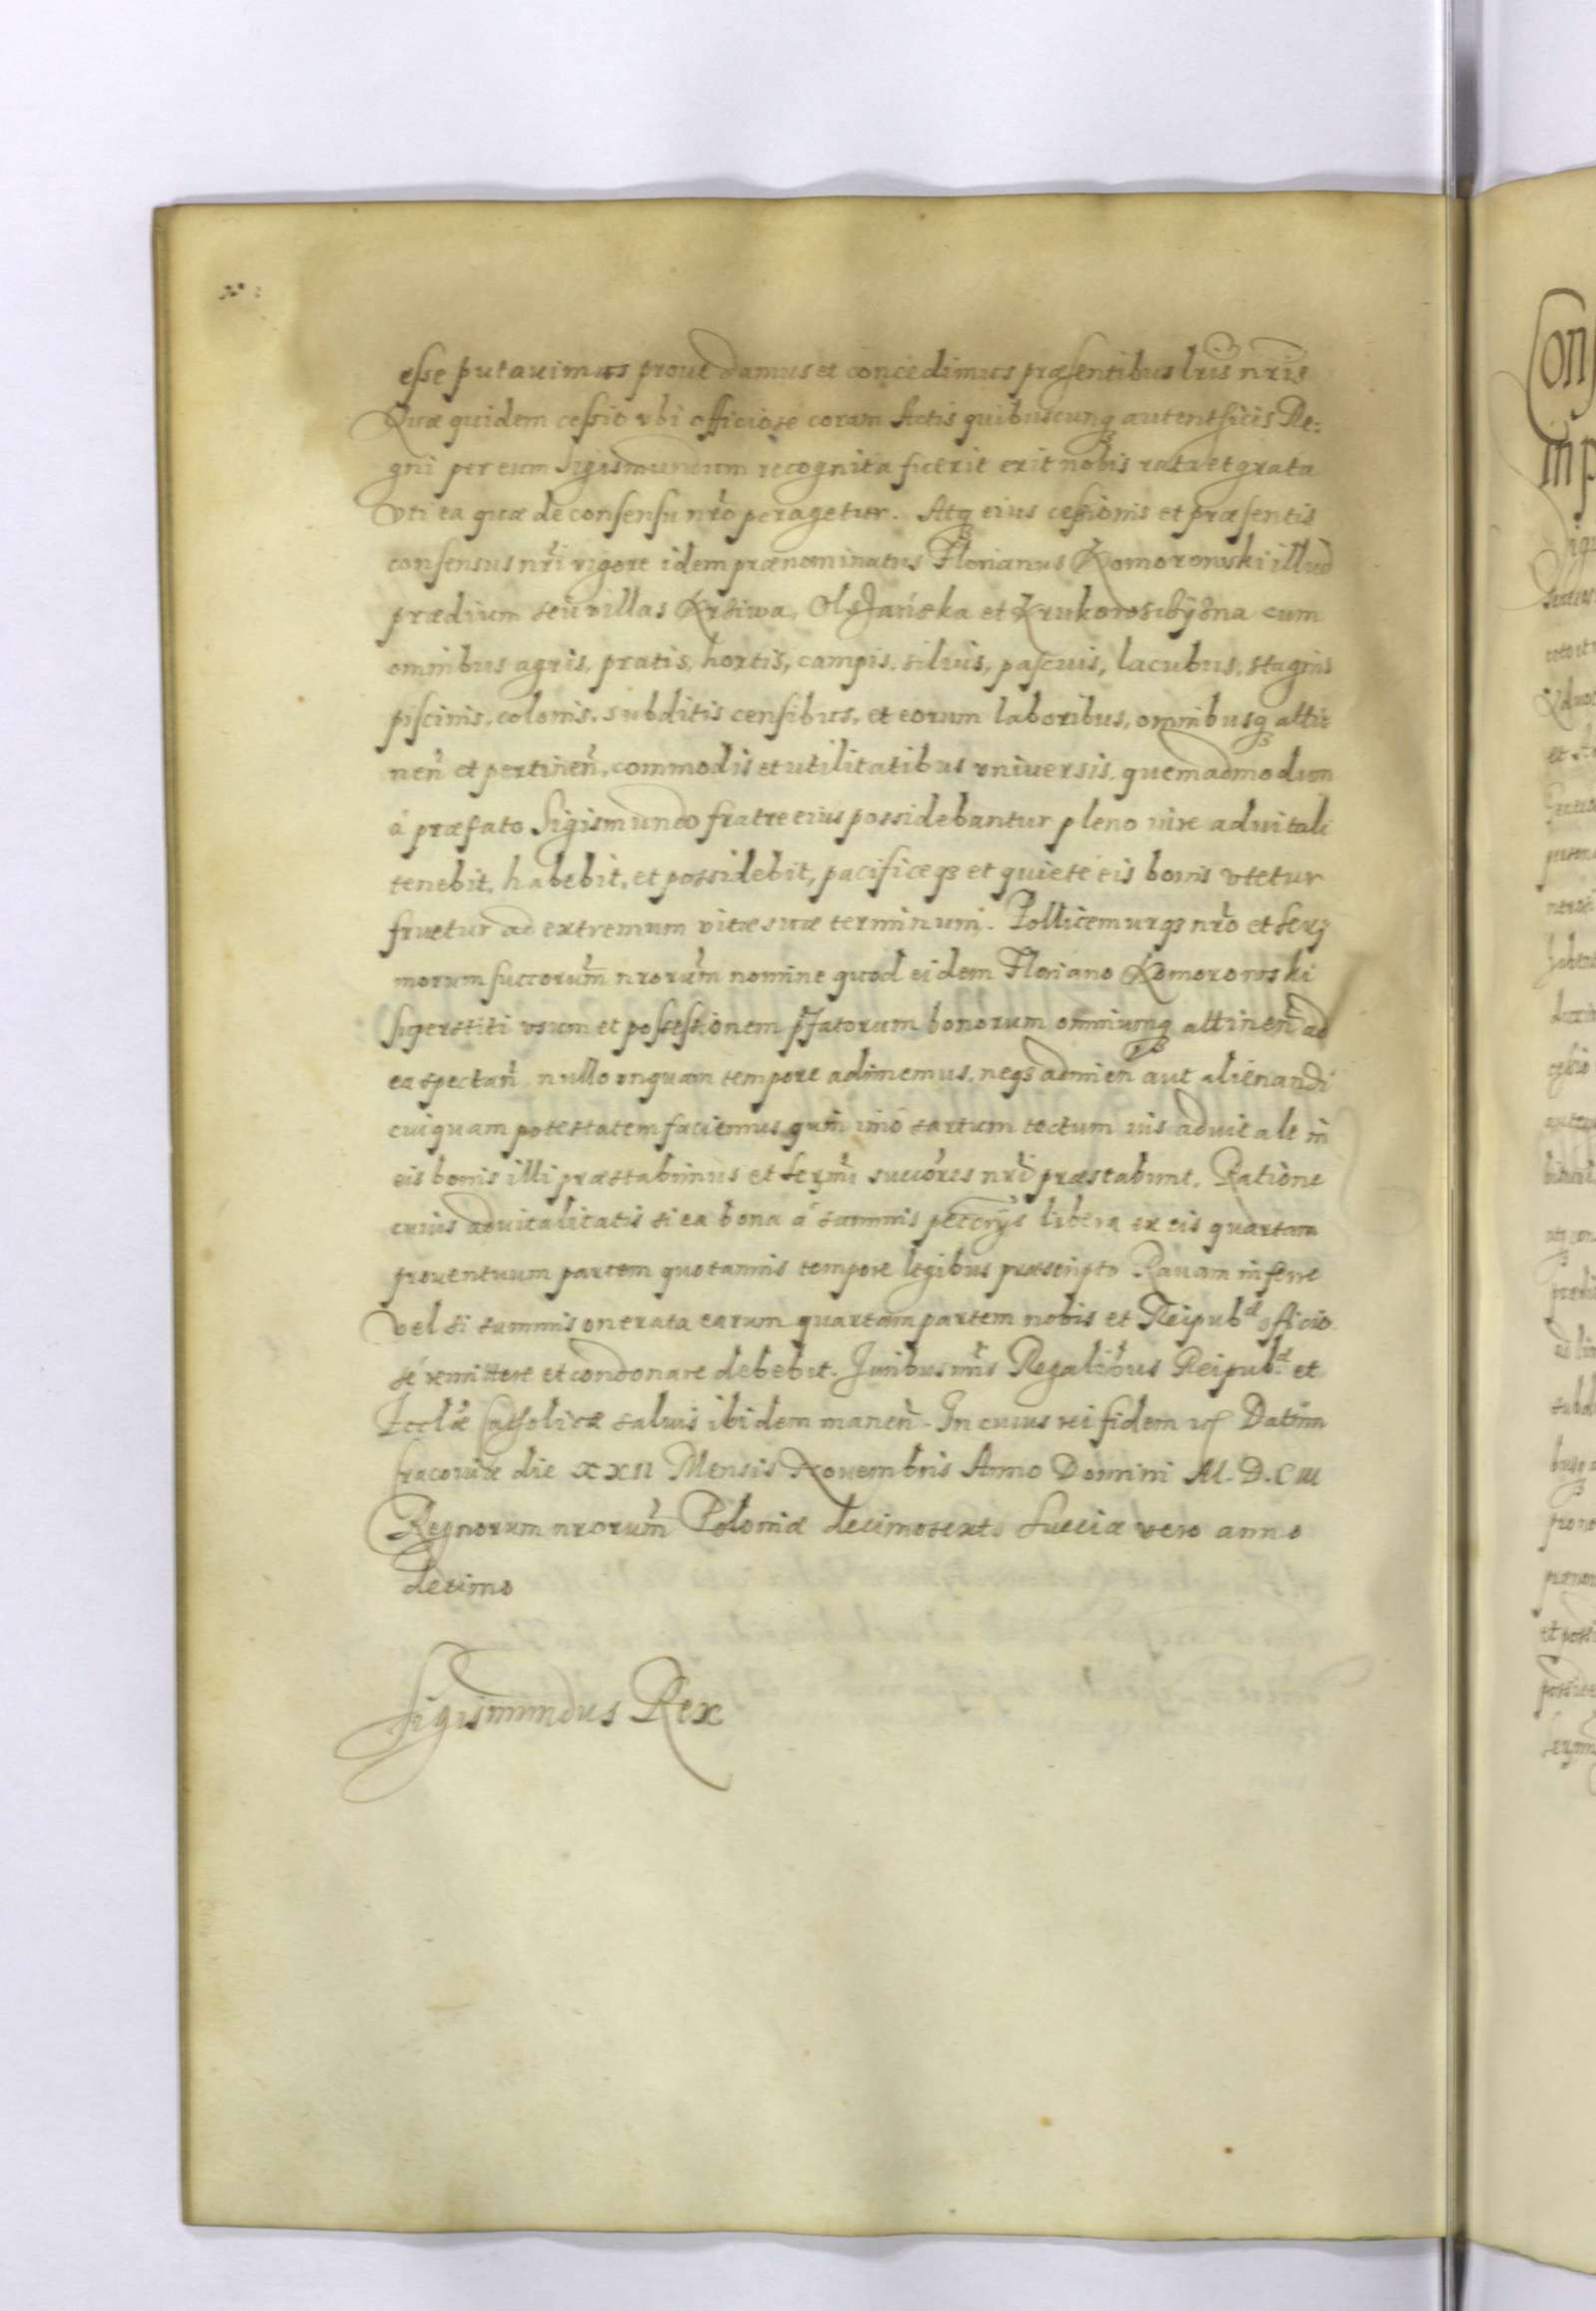 esse putauimus prout damus et concedimus præsentibus lris nris
Quæ quidem cessio vbi officiose coram Actis quibuscunq autenthicis Re:
gni per eum Sigismundum recognita fuerit erit nobis rata et grata
vti ea quæ de consensu nro peragetur. Atq eius cessionis et præsentis
consensus nri vigore idem prænominatus Florianus Komorowski illud
prædium seu villas Krsiwa, Olsſańska et cum
omnibus agris, pratis, hortis, campis, siluis, pascuis, lacubus, stagnis
piscinis, colonis, subditis censibus, et eorum laboribus, omnibusq atti:
nen et pertinen, commodis et utilitatibus vniuersis, quemadmodum
á præfato Sigismundo fratre eius possidebantur pleno iure aduitali
tenebit, habebit, et possidebit, pacificeq et quieté eis bonis vtetur
fruetur ad extremum vitæ suæ terminum. Pollicemurq nro et serz
morum succorum nrorum nomine quod eidem Floriano Komorowski
superstiti vsum et possessionem pfatorum bonorum omniumq attinen ad
ea spectan nullo vnquam tempore adimemus, neq adimen aut alienandi
cuiquam potestatem faciemus quin imó sartum tectum ius aduitale in
eis bonis illi præstabimus et sermi succores nri præstabunt. Ratione
cuius aduitalitatis si ea bona á summis libera ex eis quartam
prouentuum partem quotannis tempore legibus præscripto Rauam inferre
vel si summis onerata earum quartam partem nobis et Reipub officio
sé remittere et condonare debebit. Iuribus nris Regalibus Reipub et
Ecclæ Catholicæ saluis ibidem manen. In cuius rei fidem Datum
Cracouiæ die XXII Mensis Nouembris Anno Domini M.D.CIII
Regnorum nrorum Poloniæ decimosexto Sueciæ vero anno
decimo
Sigismundus Rex